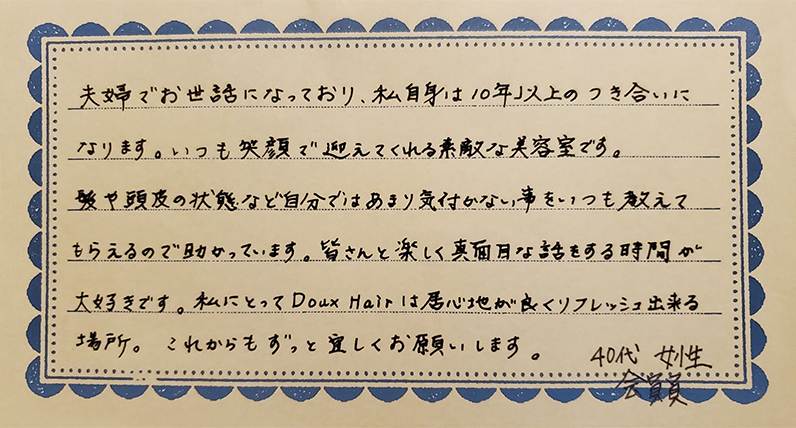 夫婦でお世話になっており、私自身は10年以上のつき合いに
なります。いつも笑顔で迎えてくれる素敵な美容室です。
髪や頭皮の状態など自分ではあまり気付かない事をいつも教えて
もらえるので助かっています。皆さんと楽しく真面目な話をする時間が
大好きです。私にとってDoux Hairは居心地が良くリフレッシュ出来る
場所。これからもずっと宜しくお願いします。
40代 女性
会員